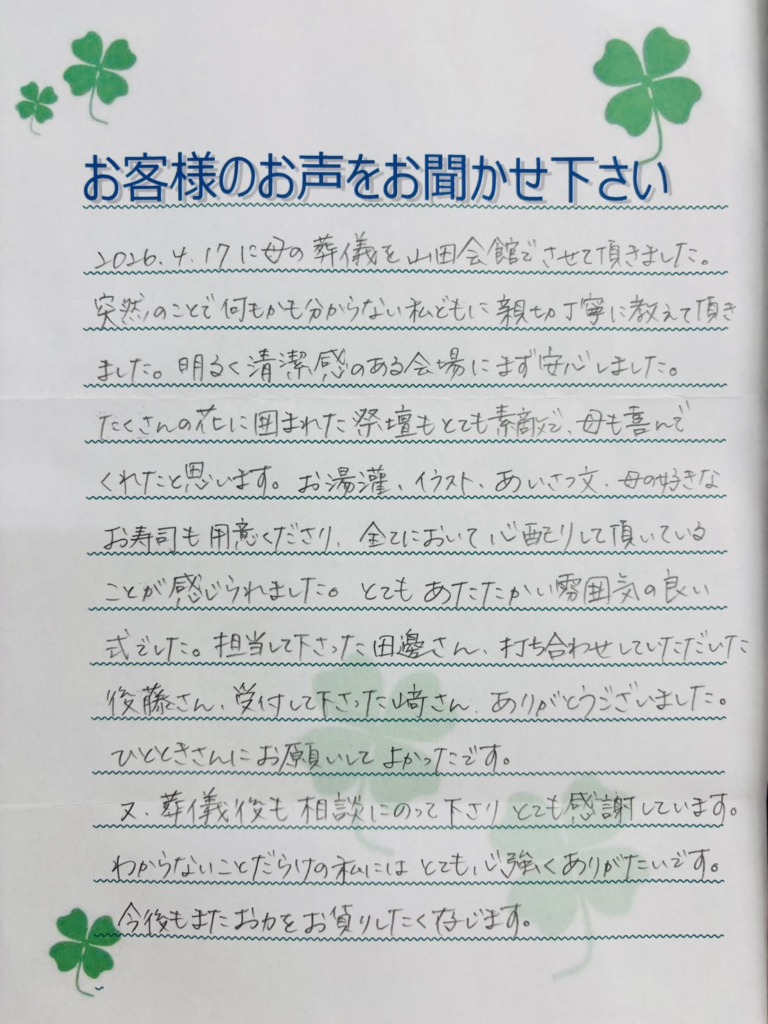 お客様のお声をお聞かせ下さい
2026.4.17に母の葬儀を山田会館でさせて頂きました。
突然のことで何もかも分からない私どもに親切丁寧に教えて頂き
ました。明るく清潔感のある会場にまず安心しました。
たくさんの花に囲まれた祭壇もとても素敵で、母も喜んで
くれたと思います。お湯灌、イラスト、あいさつ文、母の好きな
お寿司も用意くださり、全てにおいて心配りして頂いている
ことが感じられました。とてもあたたかい雰囲気の良い
式でした。担当して下さった田邊さん、打ち合わせしていただいた
後藤さん、受付して下さった山崎さん、ありがとうございました。
ひとときさんにお願いしてよかったです。
又、葬儀後も相談にのって下さりとても感謝しています。
わからないことだらけの私にはとても心強くありがたいです。
今後もまたお力をお貸りしたく存じます。